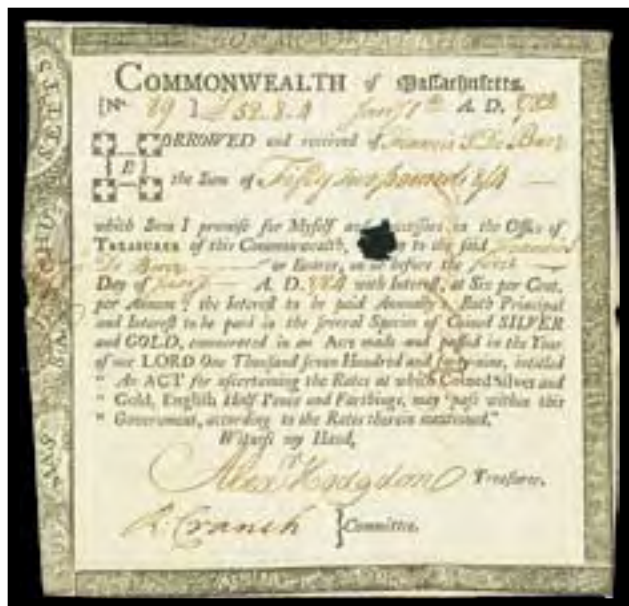 COMMONWEALTH of Massachusetts.
[No. 89 ] £52.8.4 Jany 1st A. D. 178
BORROWED and received of Francis
the Sum of Fifty two pounds 8/4
which Sum I promise for Myself and Successors in the Office of
TREASURER of this Commonwealth, to the said Francis
or Bearer, on or before the first
Day of Jany A. D. with Interest, at Six per Cent.
per Annum; the Interest to be paid Annually: Both Principal
and Interest to be paid in the several Species of Coined SILVER
and GOLD, enumerated in an Act made and passed in the Year
of our LORD One Thousand seven Hundred and forty-nine, intitled
" An ACT for ascertaining the Rates at which Coined Silver and
" Gold, English Half Pence and Farthings, may pass within this
" Government, according to the Rates therein mentioned."
Witness my Hand,
Alexr Hodgdon Treasurer.
R. Cranch } Committee.